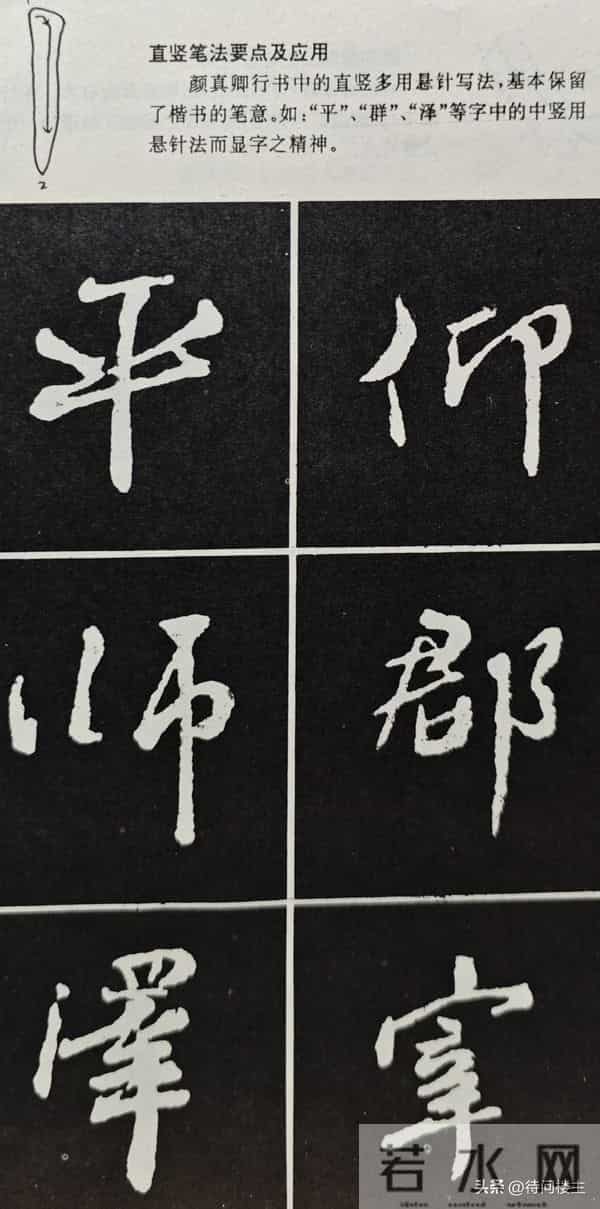 直竖笔法要点及应用
颜真卿行书中的直竖多用悬针写法，基本保留
了楷书的笔意。如：“平”、“群”、“泽”等字中的中竖用
悬针法而显字之精神。
2
平 仰
師 郡
澤 宰
若水网
头条 @待问楼主